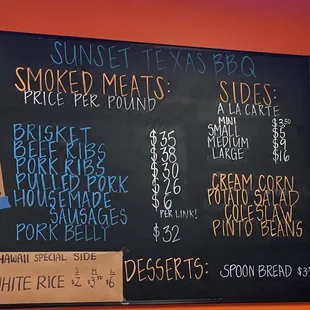 SUNSET TEXAS BBQ
SMOKED MEATS:
PRICE PER POUND
BRISKET $35
BEEF RIBS $38
PORK RIBS $30
PULLED PORK $26
HOUSEMADE
SAUSAGES $6
PER LINK!
PORK BELLY $32
SIDES:
A LA CARTE
MINI $3.50
SMALL $5
MEDIUM $9
LARGE $16
CREAM CORN
POTATO SALAD
COLESLAW
PINTO BEANS
HAWAII SPECIAL SIDE
WHITE RICE S $2 M $3.50 L $6
DESSERTS: SPOON BREAD